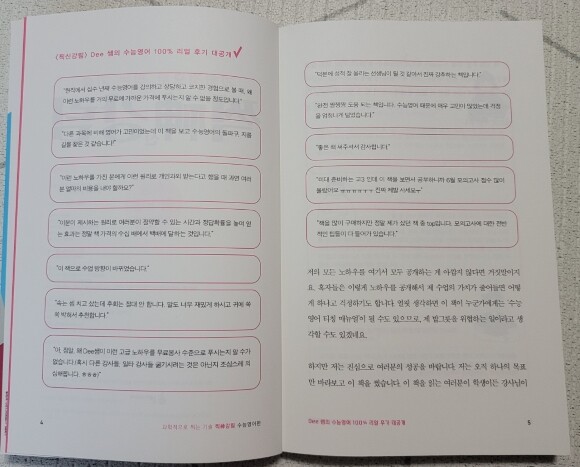 〈확신강림〉 Dee 쌤의 수능영어 100% 리얼 후기 대공개
"현직에서 십수 년째 수능영어를 강의하고 상담하고 코치한 경험으로 볼 때, 왜
이런 노하우를 거의 무료에 가까운 가격에 푸시는지 알 수 없을 정도입니다."
"다른 과목에 비해 영어가 고민이었는데 이 책을 보고 수능영어의 돌파구, 지름
길을 찾은 것 같습니다!"
"이런 노하우를 가진 분에게 이런 원리로 개인과외 받는다고 했을 때 과연 여러
분 얼마의 비용을 내야 할까요?"
"이분이 제시하는 원리로 여러분이 절약할 수 있는 시간과 정답확률을 높여 얻
는 효과는 정말 책 가격의 수십 배에서 백배에 달하는 것입니다."
"이 책으로 수업 방향이 바뀌었습니다."
"속는 셈 치고 샀는데 후회는 절대 안 합니다. 말도 너무 재밌게 하시고 귀에 쏙
쏙 박혀서 추천합니다."
"아, 정말, 왜 Dee쌤이 이런 고급 노하우를 무료봉사 수준으로 푸시는지 알 수가
없습니다! 혹시 다른 강사들, 일타 강사들 굶기시려는 것은 아닌지 조심스레 의
심해봅니다. ㅎㅎㅎ)"
4
수능영어편
"덕분에 성적 잘 올리는 선생님이 될 것 같아서 진짜 강추하는 책입니다."
"완전 쌩쌩 도움 되는 책입니다. 수능영어 때문에 매우 고민이 많았는데 걱정
을 덜어내게 되었습니다."
"좋은 책 써주셔서 감사합니다."
"이대 준비하는 고3인데 이 책을 보면서 공부하니까 6월 모의고사 점수 많이
올랐어요 ㅠㅠㅠㅠㅜㅜ 진짜 제발 사세요ㅜ"
"책을 많이 구매하지만 정말 제가 샀던 책 중 top입니다. 모의고사에 대한 전반
적인 팁들이 다 들어가 있습니다."
저의 모든 노하우를 여기서 모두 공개하는 게 아깝지 않다면 거짓말이지
요. 혹자들은 이렇게 노하우를 공개해서 제 수업의 가치가 줄어들면 어떻
게 하냐고 걱정하기도 합니다. 얼핏 생각하면 이 책이 누군가에게는 '수능
영어 티칭 매뉴얼'이 될 수도 있으므로, 제 밥그릇을 위협하는 일이라고 생
각할 수도 있겠네요.
하지만 저는 진심으로 여러분의 성공을 바랍니다. 저는 오직 하나의 목표
만 바라보고 이 책을 썼습니다. 이 책을 읽는 여러분이 학생이든 강사님이
Dee 쌤의 수능영어 100% 리얼 후기 대공개
5